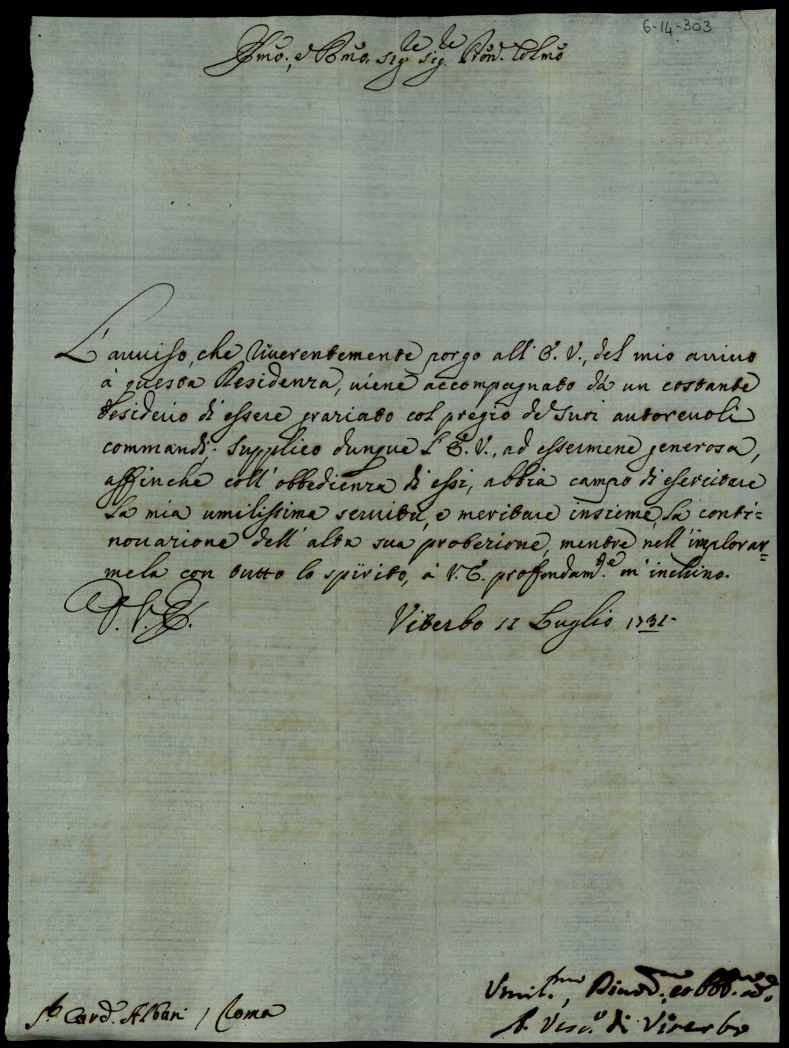 6-14-303
Emo, e Rmo. sig.re sig.re Pron. Colmo
L'auuiso, che riuerentemente porgo all' E. V., del mio arriuo
à questa Residenza, uiene accompagnato dà un costante
desiderio di essere graziato col pregio de suoi autoreuoli
commandi. Supplico dunque l'E. V., ad essermene generosa,
affinche coll' obbedienza di essi, abbia campo di esercitare
la mia umilissima seruitù, e meritare insieme, la conti=
nouazione dell' alta sua protezione, mentre nell' implorar=
mela con tutto lo spirito, à V. E. profondam.te m'inchino.
Viterbo 11 Luglio 1731.
S.r Card. Albani / Roma
Vmil.mo, Diuo.mo, et Obb.mo
A. Vesc.o di Viterbo